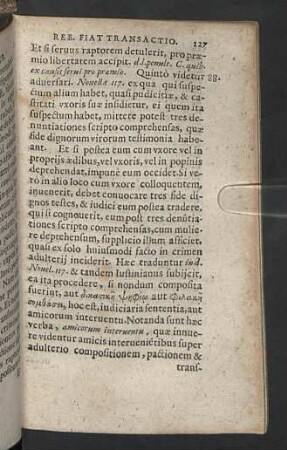 REB. FIAT TRANSACTIO. 127
Et si seruus raptorem detulerit, pro præ-
mio libertatem accipit. d.l. penult. C. quib.
ex causis serui pro præmio. Quintò videtur 88.
aduersari. Nouella 117. ex qua qui suspe-
ctum alium habet, quasi pudicitiæ, & ca-
stitati vxoris suæ insidietur, ei quem ita
suspectum habet, mittere potest tres de-
nuntiationes scripto comprehensas, quæ
fide dignorum virorum testimonia habe-
ant. Et si postea eum cum vxore vel in
proprijs ædibus, vel vxoris, vel in popinis
deprehendat, impunè eum occidet. Si ve-
rò in alio loco cum vxore colloquentem,
inuenerit, debet conuocare tres fide di-
gnos testes, & iudici eum postea tradere,
qui si cognouerit, eum post tres denūtia-
tiones scripto comprehensas, cum mulie-
re deprehensum, supplicio illum afficiet,
quasi ex solo huiusmodi facto in crimen
adulterij inciderit. Hæc traduntur in d.
Nouel. 117. & tandem Iustinianus subijcit,
ea ita procedere, si nondum composita
fuerint, aut δικαστικῇ ψήφῳ aut φιλικῇ
συμβάσει, hoc est, iudiciaria sententia, aut
amicorum interuentu. Notanda sunt hæc
verba, amicorum interuentu, quæ innue-
re videntur amicis interueniētibus super
adulterio compositionem, pactionem &
trans-